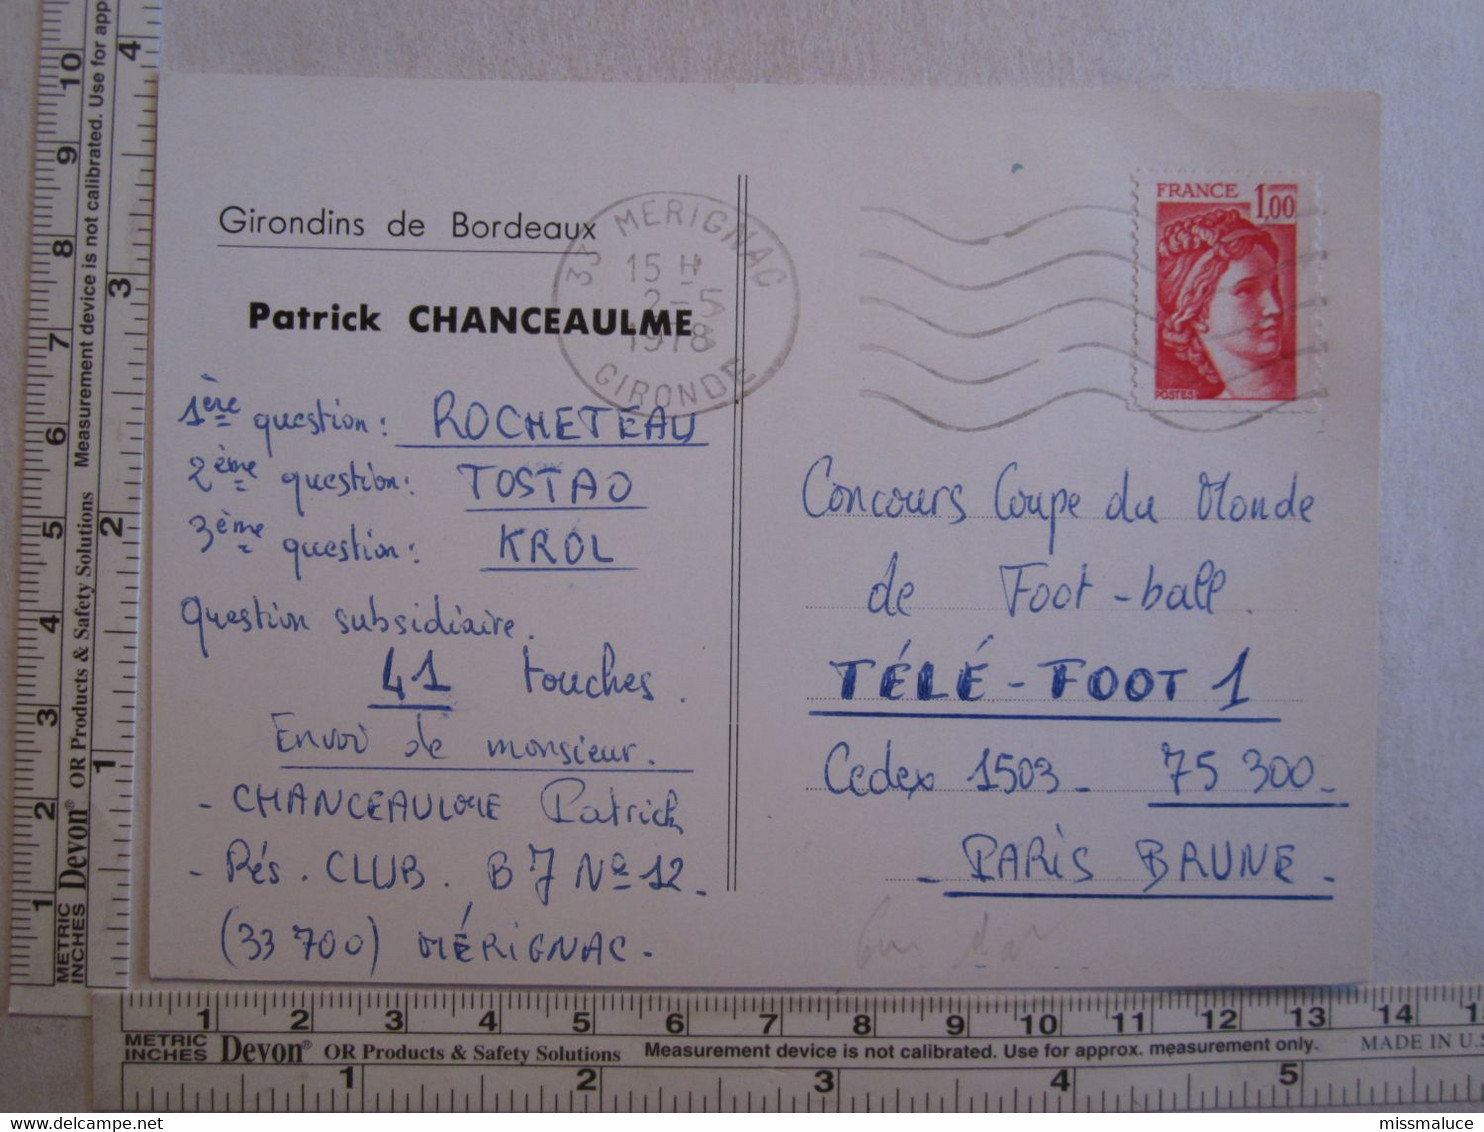 Girondins de Bordeaux
Patrick CHANCEAULME
33 MERIGNAC
15 H
2-5
1978
GIRONDE
FRANCE 1,00
POSTES
1ère question : ROCHETEAU
2ème question : TOSTAO
3ème question : KROL
question subsidiaire.
41 touches.
Envoi de monsieur.
- CHANCEAULME Patrick
- Rés. CLUB. B7 Nº 12.
(33 700) MÉRIGNAC.
Concours Coupe du Monde
de Foot-ball.
TÉLÉ-FOOT 1
Cedex 1503 - 75 300.
- PARIS BRUNE -
1 2 3 4 5 6 7 8 9 10
METRIC
INCHES
Devon® OR Products & Safety Solutions Measurement device is not calibrated. Use for app
1 2 3 4
1 2 3 4 5 6 7 8 9 10 11 12 13 14 15
METRIC
INCHES
Devon® OR Products & Safety Solutions Measurement device is not calibrated. Use for approx. measurement only. MADE IN U.S
1 2 3 4 5
missmaluce